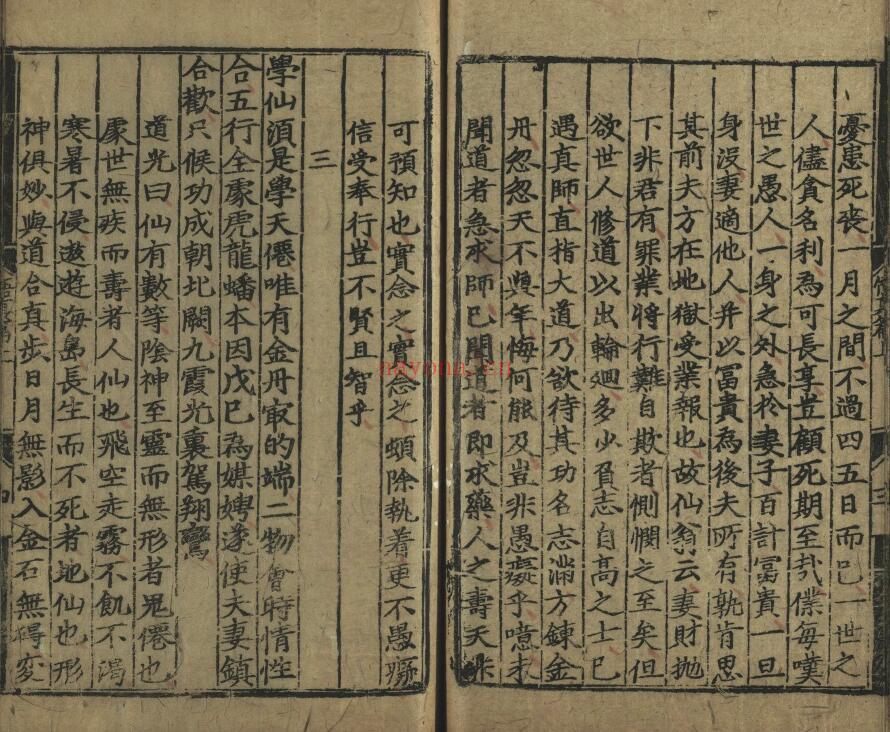 憂患死喪一月之間不過四五日而已一世之
人儘貪名利為可長享豈顧死期至㦲僕每嘆
世之愚人一身之外急於妻子百計富貴一旦
身沒妻適他人并以冨貴為後夫所有孰肯思
其前夫方在地獄受業報也故仙翁云妻財抛
下非君有罪業將行難自欺者惻憫之至矣但
欲世人修道以出輪廻多少負志自高之士已
遇真師直指大道乃欲待其功名志滿方鍊金
丹忽忽天不與年悔何能及豈非愚癡乎噫未
聞道者急求師已聞道者即求藥人之壽夭非
可預知也實念之實念之頓除執着更不愚癡
信受奉行豈不賢且智乎
三
學仙須是學天僊唯有金丹㝡的端二物會時情性
合五行全處虎龍蟠本因戊己為媒娉遂使夫妻鎮
合歡只候功成朝北闕九霞光裏駕翔鸞
道光曰仙有數等陰神至靈而無形者鬼僊也
處世無疾而壽者人仙也飛空走霧不飢不渴
寒暑不侵遨遊海島長生而不死者地仙也形
神俱妙與道合真步日月無影入金石無碍变
nayona.cn